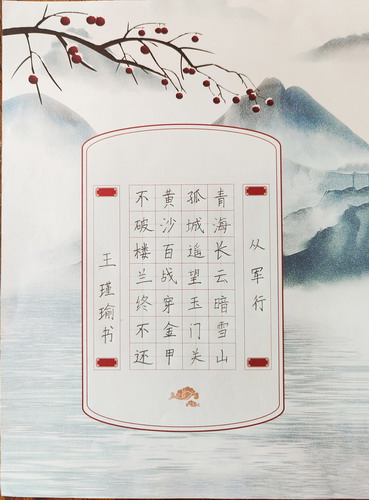 从军行
青海长云暗雪山
孤城遥望玉门关
黄沙百战穿金甲
不破楼兰终不还
王瑾瑜书